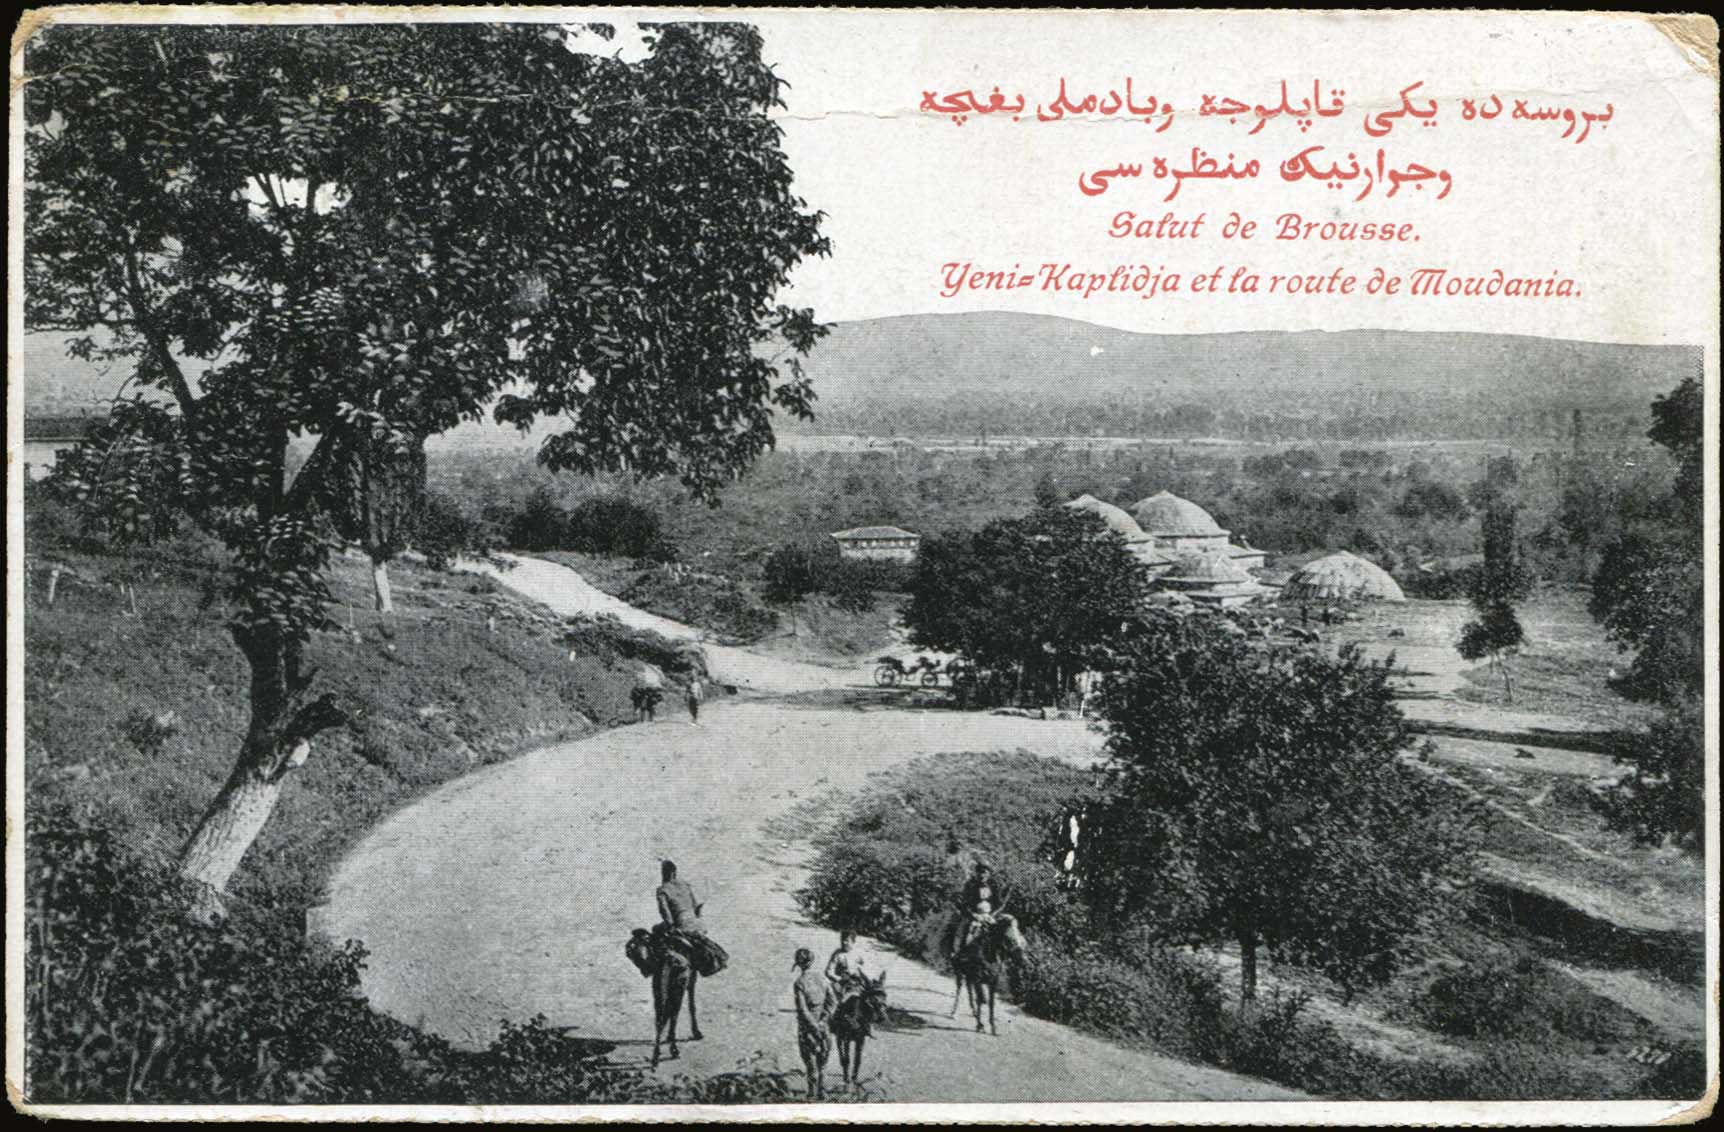 بروسه ده یکی قاپلوجه وبادملی بغچه
وجوارنیك منظره سی
Salut de Brousse.
Yeni=Kaplidja et la route de Moudania.